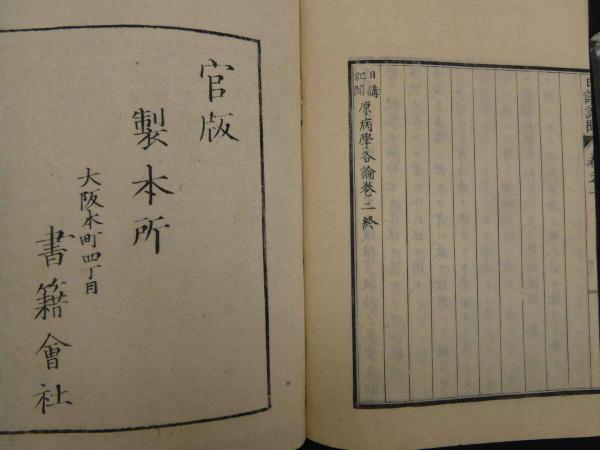 日講
記聞 原病學各論卷二終
官版
製本所
大阪本町四丁目
書籍會社